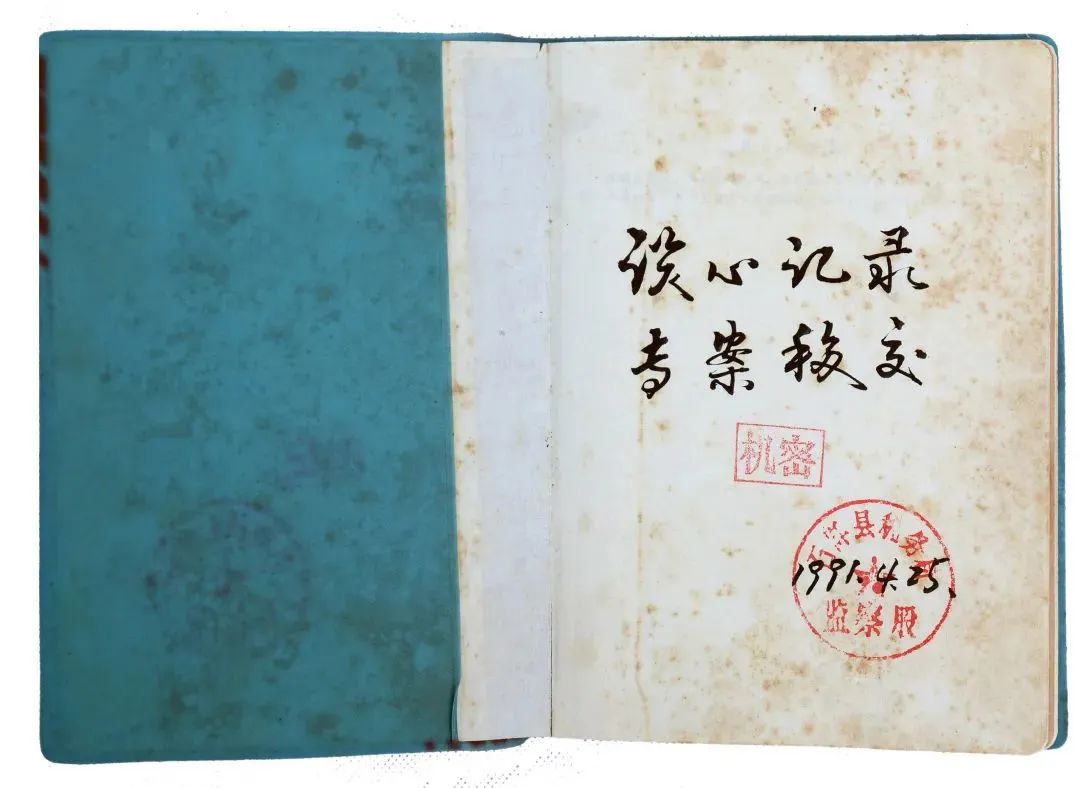 谈心记录
专案移交
机密
兴县税务
1991.4.25.
监察股